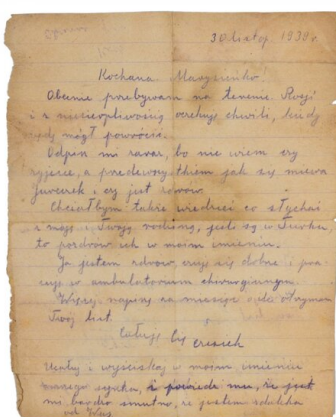 30 listop. 1939 r.
Kochana Marysieńko!
Obecnie przebywam na terenie Rosji
i z niecierpliwością oczekuję chwili, kiedy
będę mógł powrócić.
Odpisz mi zaraz, bo nie wiem czy
żyjecie, a przede wszystkiem jak się miewa
Jureczek i czy jest zdrów.
Chciałbym także wiedzieć co słychać
z moją i Twoją rodziną, jeśli są w
to pozdrów ich w moim imieniu.
Ja jestem zdrów czuję się dobrze i pra-
cuję w ambulatorium chirurgicznym.
Więcej napiszę za miesiąc gdy otrzymam
Twój list.
Całuję Cię
Ucałuj i wyściskaj w moim imieniu
naszego synka, i powiedz mu, że jest
mi bardzo smutno, że jestem zdaleka
od Was